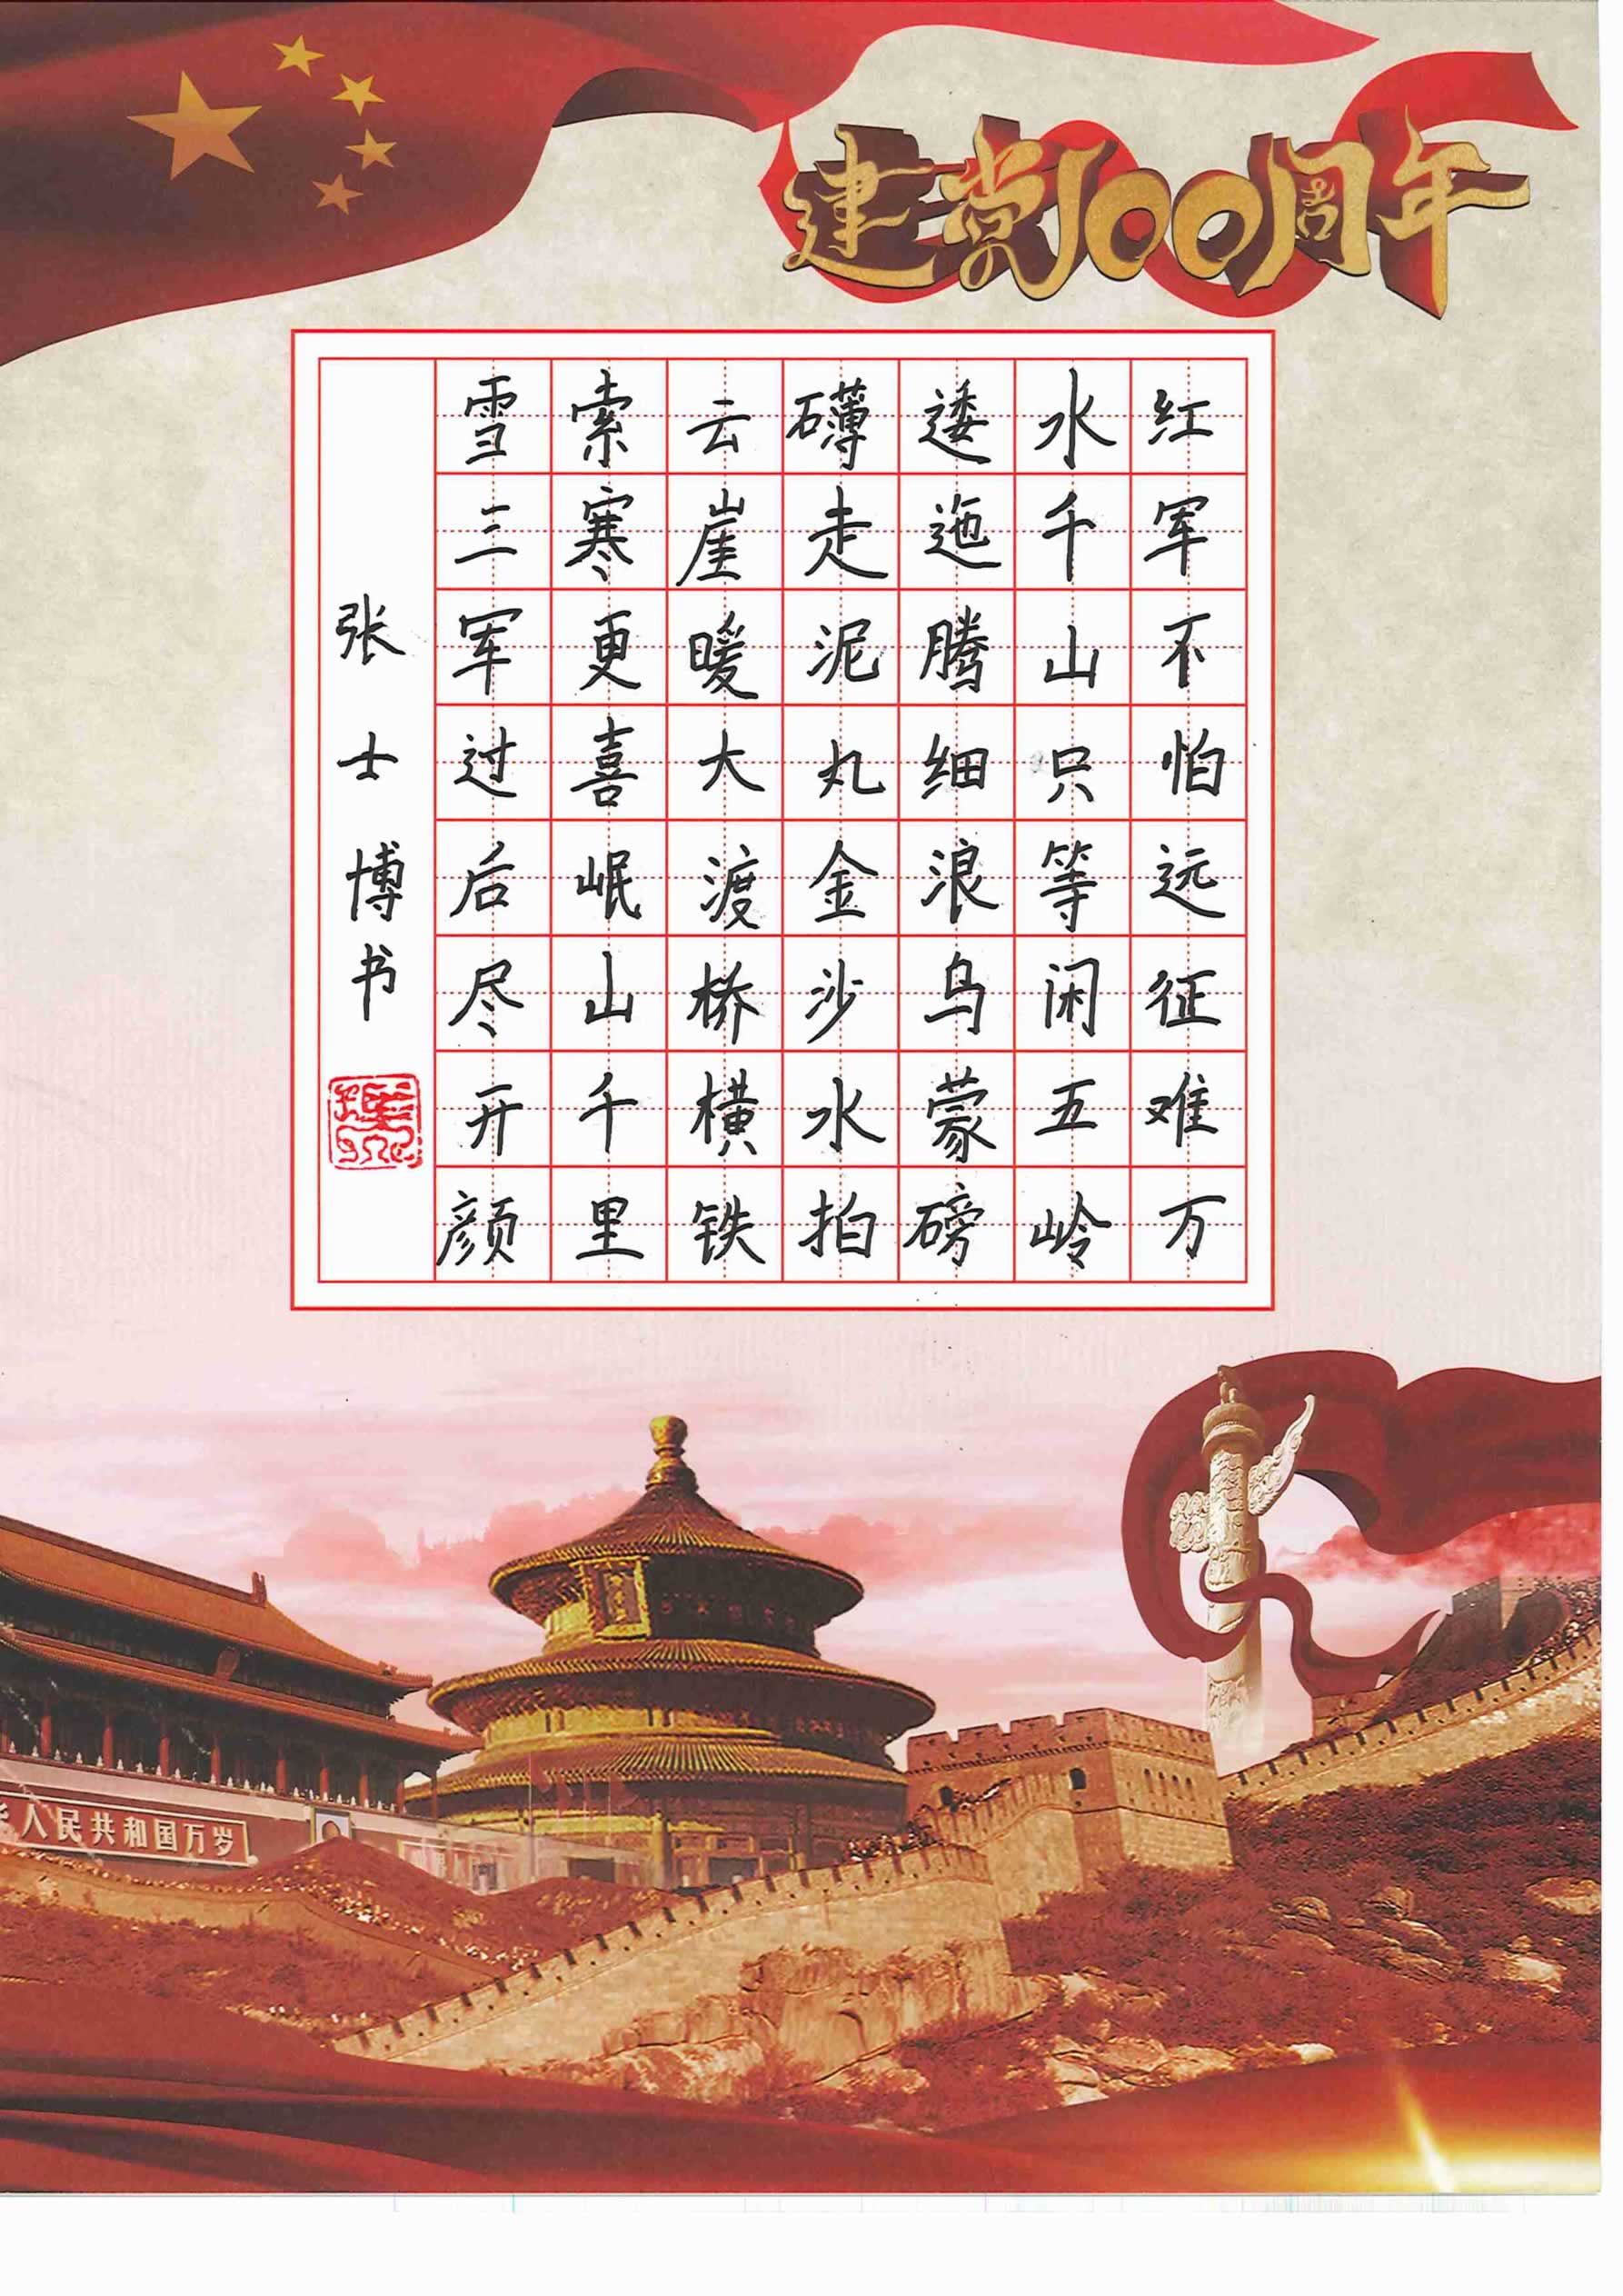 建党100周年
红军不怕远征难万
水千山只等闲五岭
逶迤腾细浪乌蒙磅
礴走泥丸金沙水拍
云崖暖大渡桥横铁
索寒更喜岷山千里
雪三军过后尽开颜
张士博书
人民共和国万岁